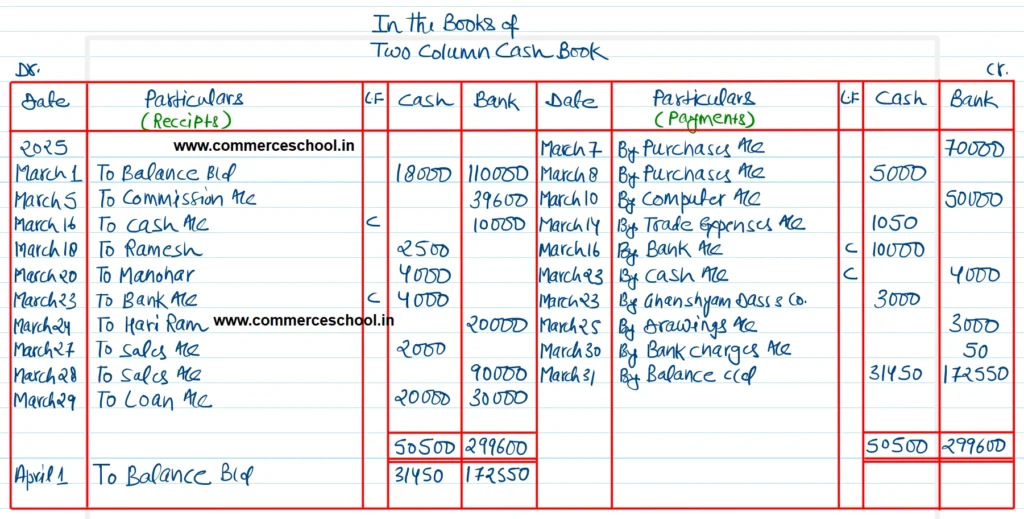 In the Books of
Two Column Cash Book
Dr. Cr.
Date Particulars (Receipts) LF Cash Bank Date Particulars (Payments) LF Cash Bank
2025 www.commerceschool.in March 7 By Purchases A/c 70000
March 1 To Balance B/d 18000 110000 March 8 By Purchases A/c 5000
March 5 To Commission A/c 39600 March 10 By Computer A/c 50000
March 16 To Cash A/c C 10000 March 14 By Trade Expenses A/c 1050
March 18 To Ramesh 2500 March 16 By Bank A/c C 10000
March 20 To Manohar 4000 March 23 By Cash A/c C 4000
March 23 To Bank A/c C 4000 March 23 By Ghanshyam Dass & Co. 3000
March 24 To Hari Ram www.commerceschool.in 20000 March 25 By Drawings A/c 3000
March 27 To Sales A/c 2000 March 30 By Bank charges A/c 50
March 28 To Sales A/c 90000 March 31 By Balance c/d 31450 172550
March 29 To Loan A/c 20000 30000
50500 299600 50500 299600
April 1 To Balance B/d 31450 172550